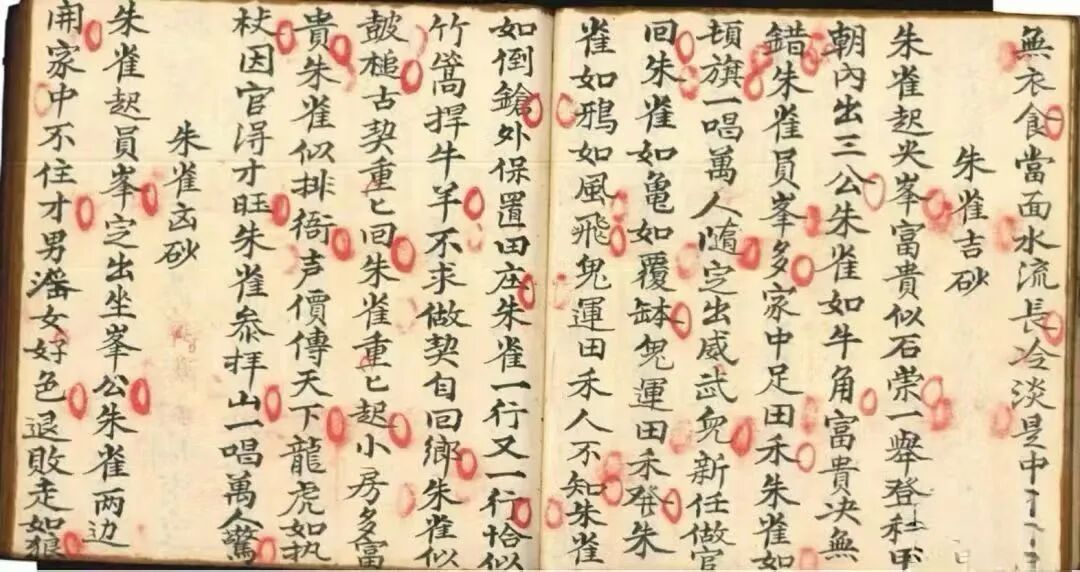 無衣食當面水流長冷淡是中
朱雀吉砂
朱雀起火峯富貴似石崇一舉登科甲
朝內出三公朱雀如牛角富貴决無
錯朱雀員峯多家中足田禾朱雀如
頓旗一唱萬人隨定出威武新任做官
回朱雀如亀如覆缽鬼運田禾發朱
雀如鴉如風飛鬼運田禾人不知朱雀
如倒鎗外保置田庄朱雀一行又一行恰似
竹篙捍牛羊不求做契自回鄉朱雀似
皷槌古契重匕回朱雀重匕起小房多富
貴朱雀似排衙声價傳天下龍虎如执
杖因官淂才旺朱雀叅拜山一唱萬人驚
朱雀凶砂
朱雀起員峯定出坐峯公朱雀两边
開家中不住才男滛女好色退敗走如狼